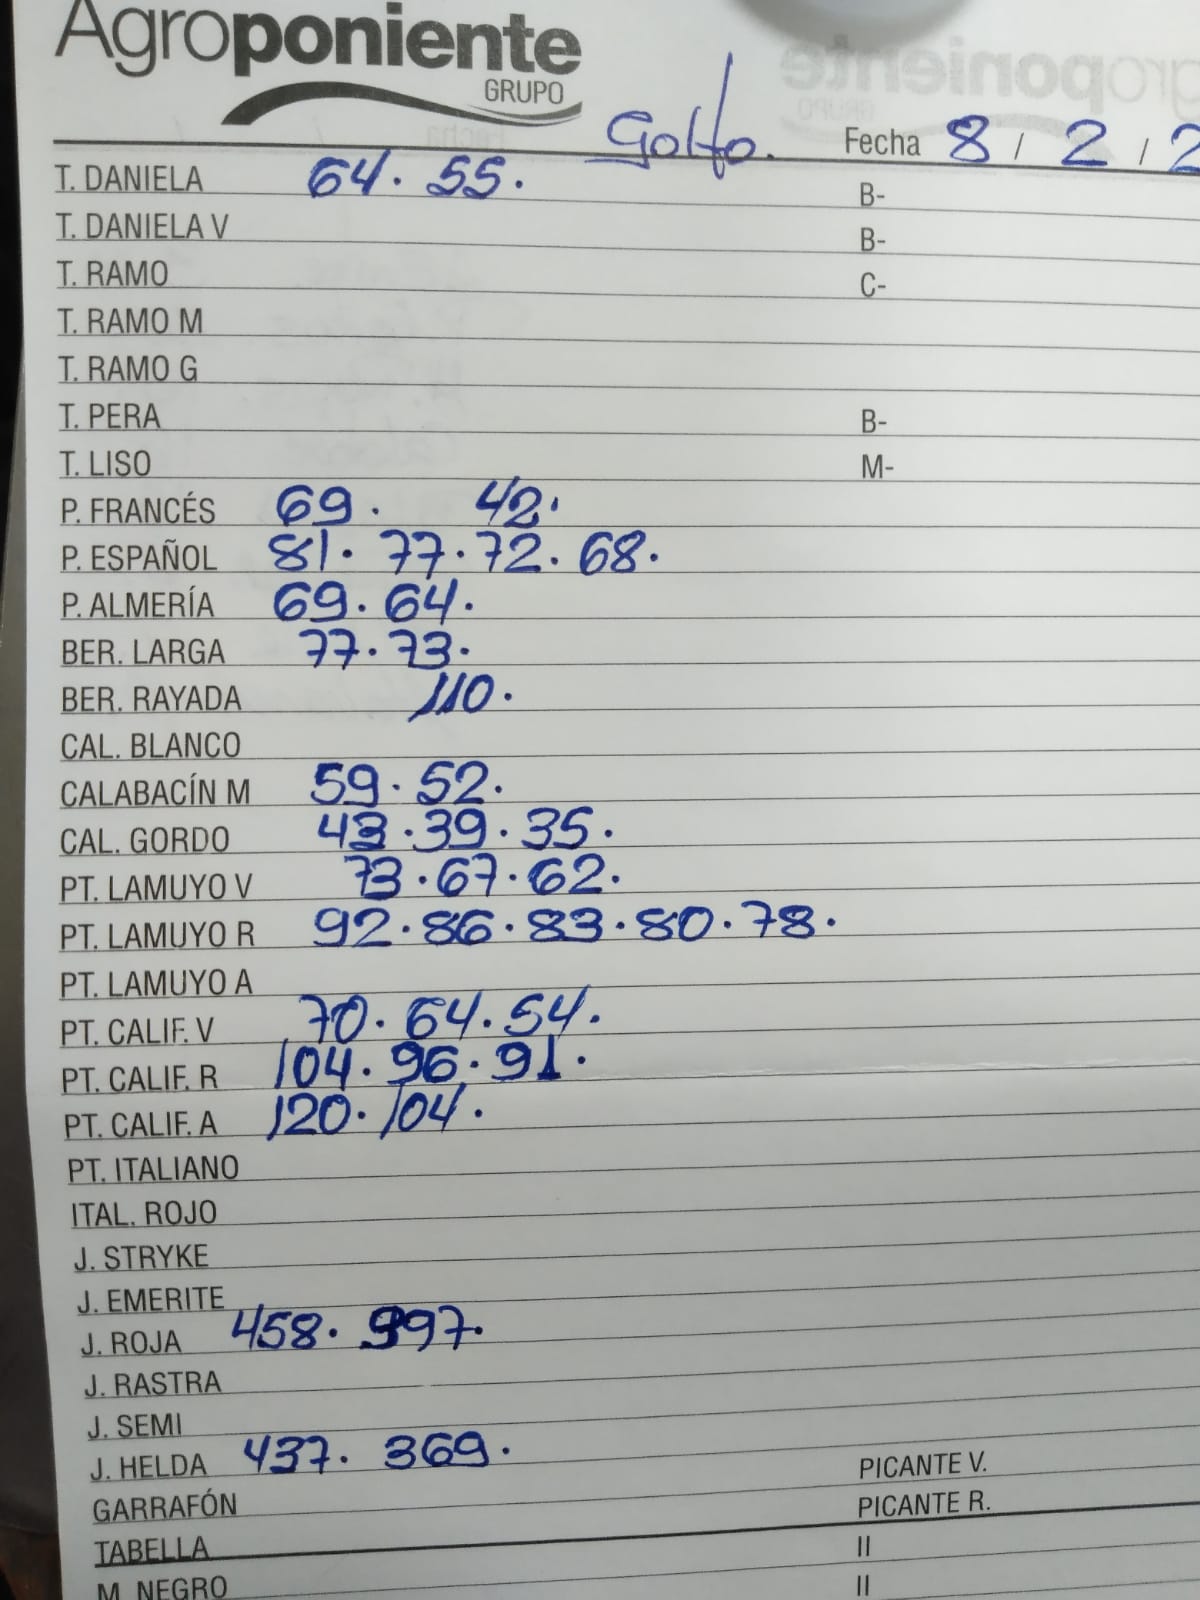 Agroponiente
GRUPO
Golfo. Fecha 8 / 2 / 2
T. DANIELA 64. 55. B-
T. DANIELA V B-
T. RAMO C-
T. RAMO M
T. RAMO G
T. PERA B-
T. LISO M-
P. FRANCÉS 69. 42.
P. ESPAÑOL 81. 77. 72. 68.
P. ALMERÍA 69. 64.
BER. LARGA 77. 73.
BER. RAYADA 110.
CAL. BLANCO
CALABACÍN M 59. 52.
CAL. GORDO 43. 39. 35.
PT. LAMUYO V 73. 67. 62.
PT. LAMUYO R 92. 86. 83. 80. 78.
PT. LAMUYO A
PT. CALIF. V 70. 64. 54.
PT. CALIF. R 104. 96. 91.
PT. CALIF. A 120. 104.
PT. ITALIANO
ITAL. ROJO
J. STRYKE
J. EMERITE
J. ROJA 458.
J. RASTRA
J. SEMI
J. HELDA 437. 369.
GARRAFÓN PICANTE V.
TABELLA PICANTE R.
M. NEGRO II
II